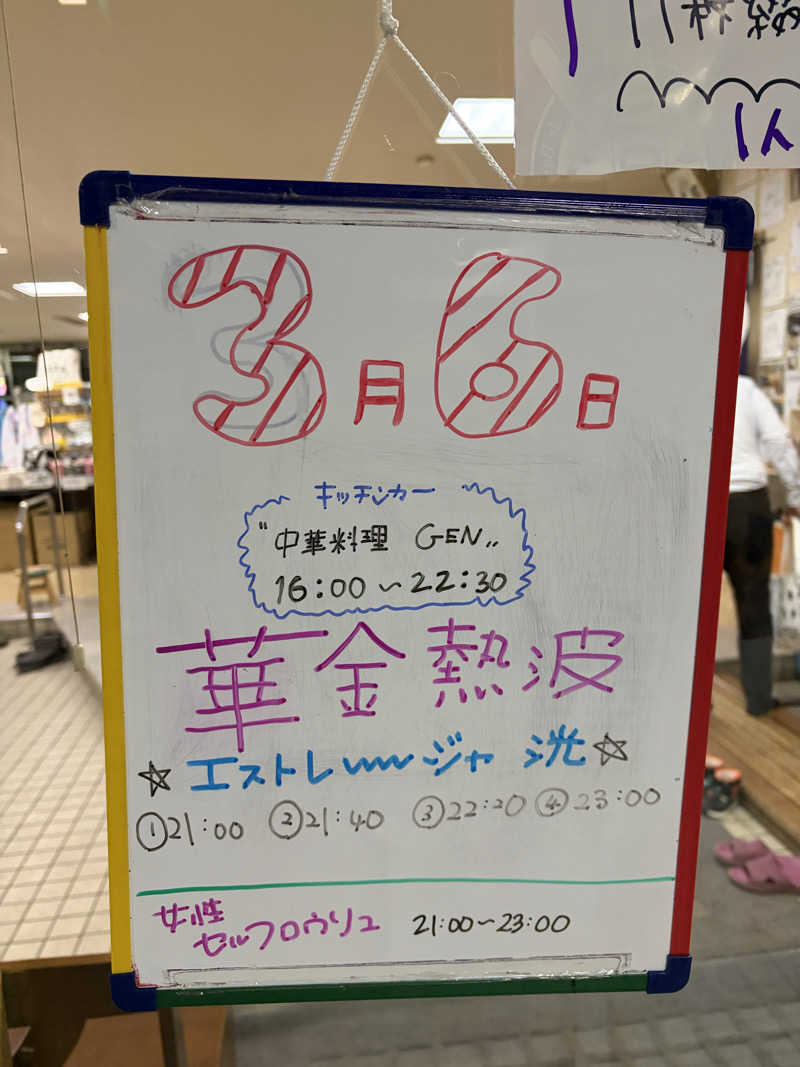 1人
3月6日
キッチンカー
"中華料理 GEN"
16:00〜22:30
華金熱波
☆エストレ〰ジャ 洸☆
①21:00 ②21:40 ③22:20 ④23:00
女性
セルフロウリュ 21:00〜23:00